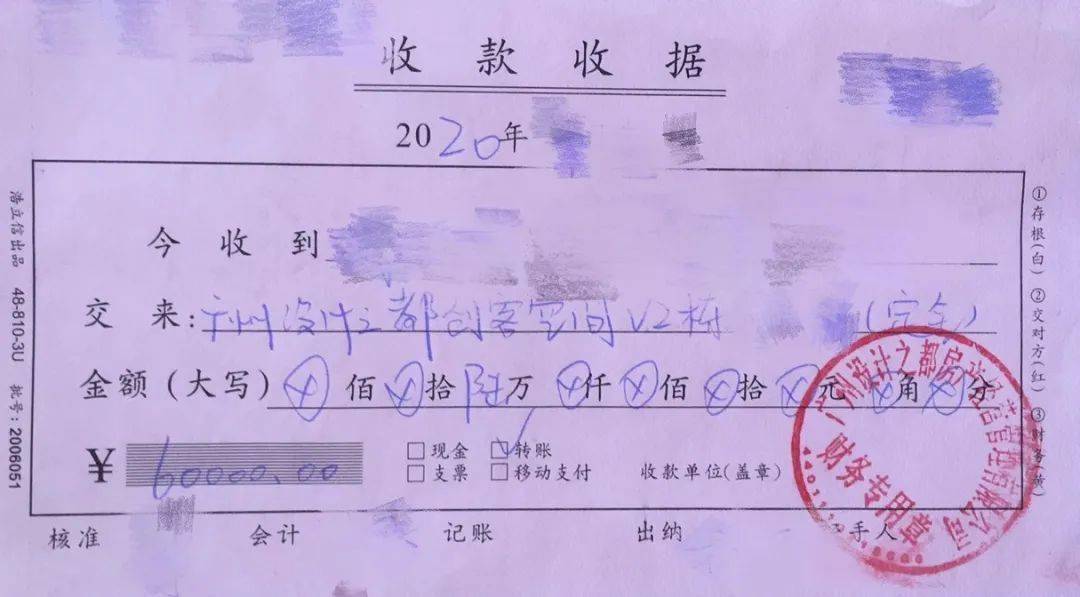 收款收据
2020年
今收到
交来:广州设计之都创客空间V2栋 (定金)
金额(大写) ⊗佰⊗拾陆万⊗仟⊗佰⊗拾⊗元⊗角⊗分
¥ 60000.00 □现金 ☑转账
□支票 □移动支付 收款单位(盖章)
核准 会计 记账 出纳 手人
浩立信出品 48-810-3U 批号:2006051
①存根(白) ②交对方(红) ③财务(黄)
广州设计之都 管理有限公司
财务专用章